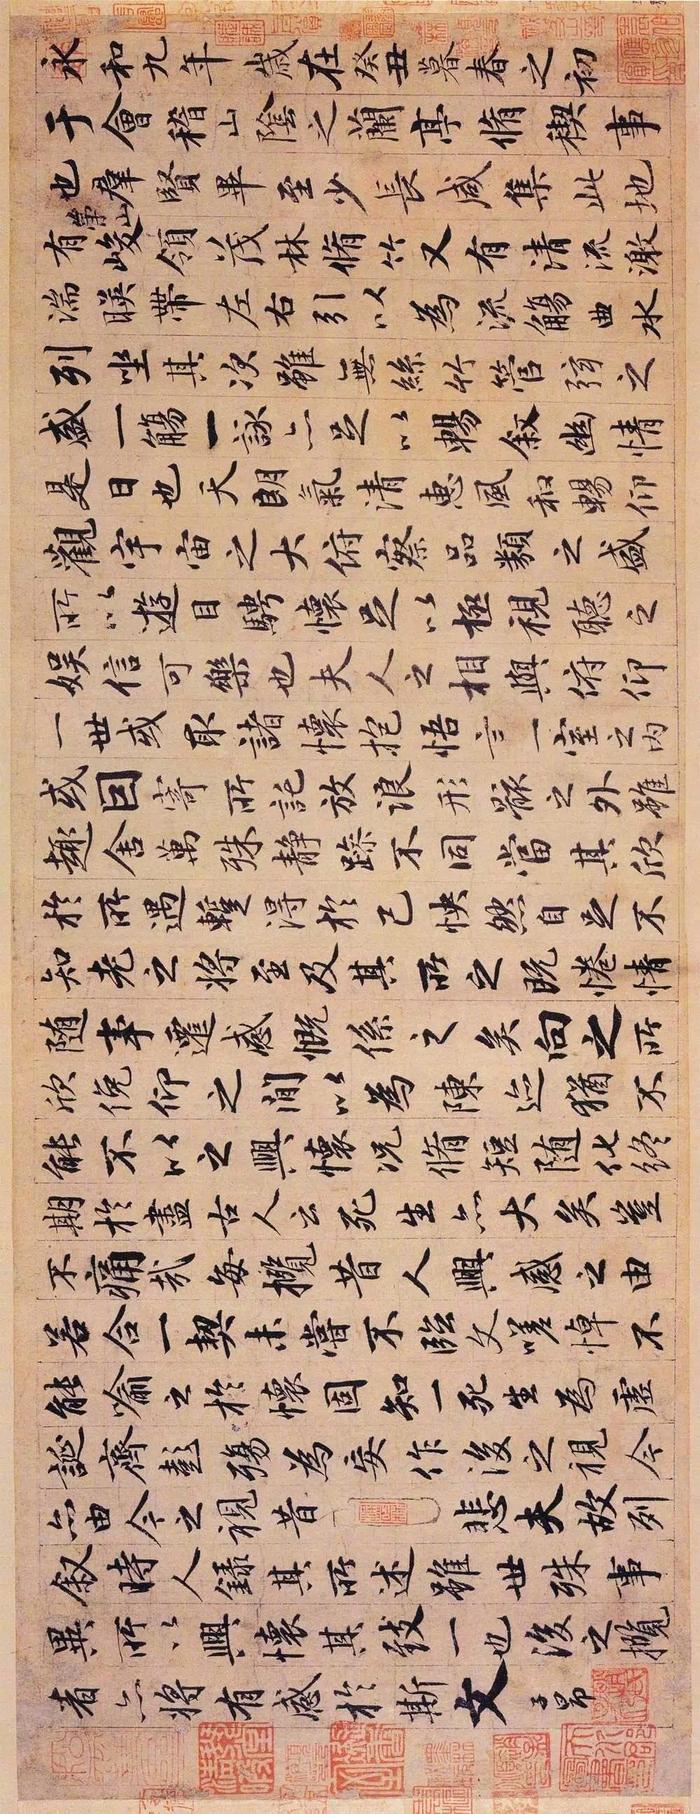 永和九年歲在癸丑暮春之初
于會稽山陰之蘭亭脩禊事
也羣賢畢至少長咸集此地
有崇山峻領茂林脩竹又有清流激
湍暎帶左右引以為流觴曲水
列坐其次雖無絲竹管弦之
盛一觴一詠亦足以暢敘幽情
是日也天朗氣清惠風和暢仰
觀宇宙之大俯察品類之盛
所以遊目騁懷足以極視聽之
娛信可樂也夫人之相與俯仰
一世或取諸懷抱悟言一室之內
或因寄所託放浪形骸之外雖
趣舍萬殊靜躁不同當其欣
於所遇暫得於己怏然自足不
知老之將至及其所之既惓情
随事遷感慨係之矣向之所
欣俛仰之間以為陳迹猶不
能不以之興懷況脩短随化終
期於盡古人云死生亦大矣豈
不痛哉每攬昔人興感之由
若合一契未嘗不臨文嗟悼不
能喻之於懷固知一死生為虛
誕齊彭殤為妄作後之視今
亦由今之視昔 悲夫故列
敘時人錄其所述雖世殊事
異所以興懷其致一也後之攬
者亦將有感於斯文 子昂